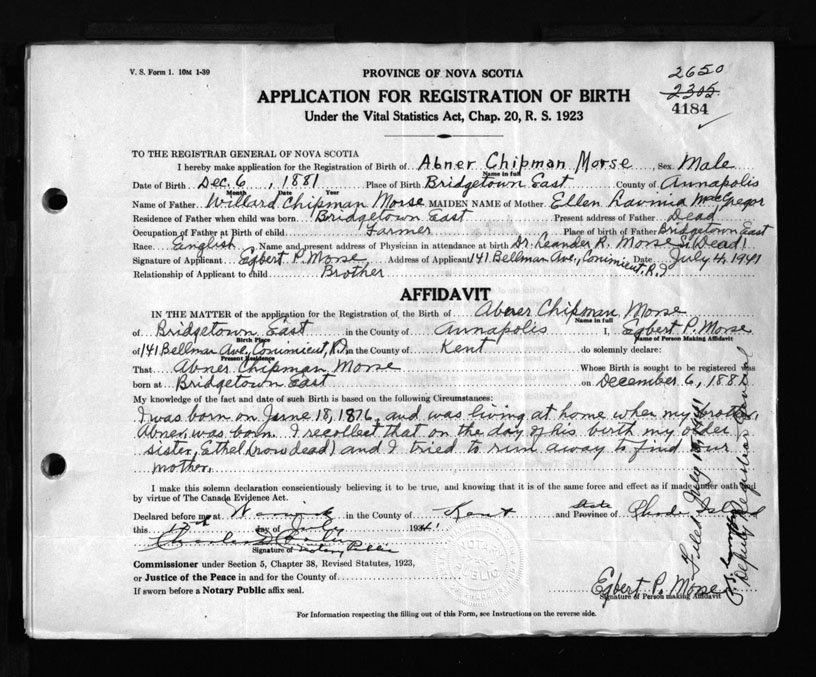 V. S. Form 1. 10M 1-39
2650
2305
4184
PROVINCE OF NOVA SCOTIA
APPLICATION FOR REGISTRATION OF BIRTH
Under the Vital Statistics Act, Chap. 20, R. S. 1923
TO THE REGISTRAR GENERAL OF NOVA SCOTIA
I hereby make application for the Registration of Birth of Abner Chipman Morse, Sex Male
Name in full
Date of Birth Dec. 6, 1881 Place of Birth Bridgetown East County of Annapolis
Month Date Year
Name of Father Willard Chipman Morse MAIDEN NAME of Mother Ellen Lavinia MacGregor
Residence of Father when child was born Bridgetown East Present address of Father Dead
Occupation of Father at Birth of child Farmer Place of birth of Father Bridgetown East
Race English Name and present address of Physician in attendance at birth Dr. Leander R. Morse (Dead)
Signature of Applicant Egbert P. Morse Address of Applicant 141 Bellman Ave., Conimicut, R.I. Date July 4, 1941
Relationship of Applicant to child Brother
AFFIDAVIT
IN THE MATTER of the application for Registration of the Birth of Abner Chipman Morse
Name in full
of Bridgetown East in the County of Annapolis I, Egbert P. Morse
Birth Place Name of Person Making Affidavit
of 141 Bellman Ave, Conimicut, R.I. in the County of Kent do solemnly declare:
Present Residence
That Abner Chipman Morse Whose Birth is sought to be registered was
born at Bridgetown East on December 6, 1881
My knowledge of the fact and date of such Birth is based on the following Circumstances:
I was born on June 18, 1876, and was living at home when my brother,
Abner, was born. I recollect that on the day of his birth my older
sister, Ethel (now dead) and I tried to run away to find our
mother.
I make this solemn declaration conscientiously believing it to be true, and knowing that it is of the same force and effect as if made under oath
by virtue of The Canada Evidence Act.
Declared before me at Warwick in the County of Kent State and Province of Rhode Island
this day of July 1941
Signature of Notary Public
Commissioner under Section 5, Chapter 38, Revised Statutes, 1923,
or Justice of the Peace in and for the County of
If sworn before a Notary Public affix seal.
Egbert P. Morse
Signature of Person making Affidavit
Filed July 1941
Deputy Registrar General
For Information respecting the filling out of this Form, see Instructions on the reverse side.